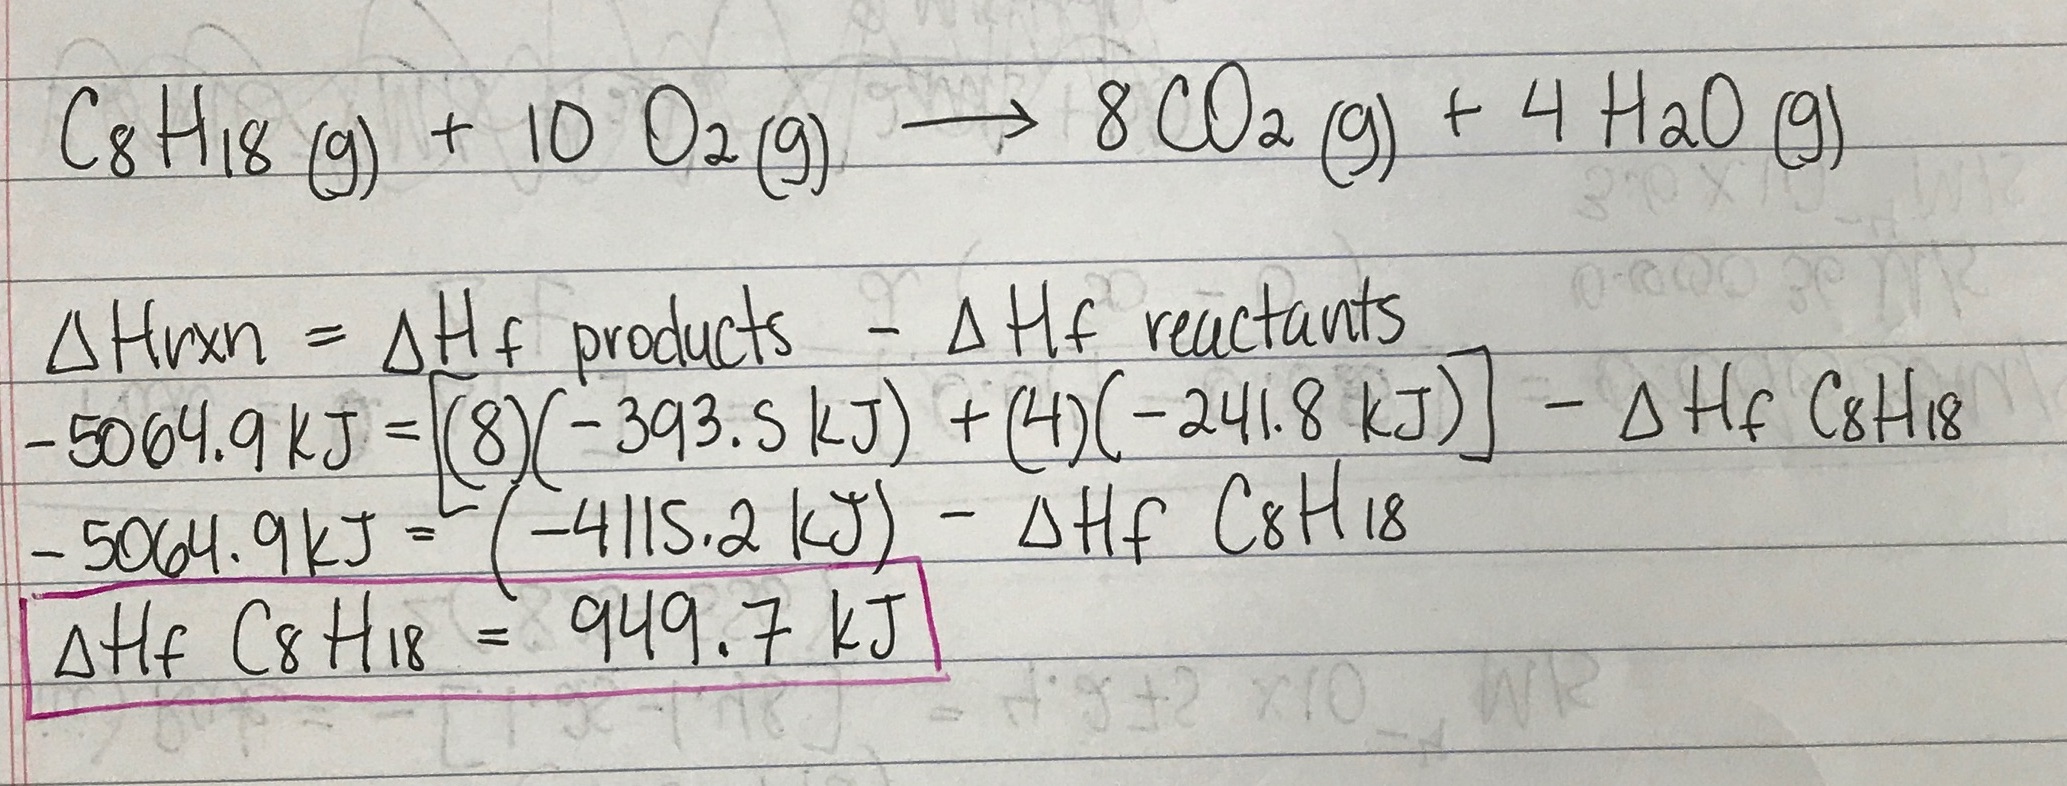 C8H18 (g) + 10 O2 (g) → 8 CO2 (g) + 4 H2O (g)
ΔHrxn = ΔHf products - ΔHf reactants
-5064.9 kJ = [(8)(-393.5 kJ) + (4)(-241.8 kJ)] - ΔHf C8H18
-5064.9 kJ = (-4115.2 kJ) - ΔHf C8H18
ΔHf C8H18 = 949.7 kJ